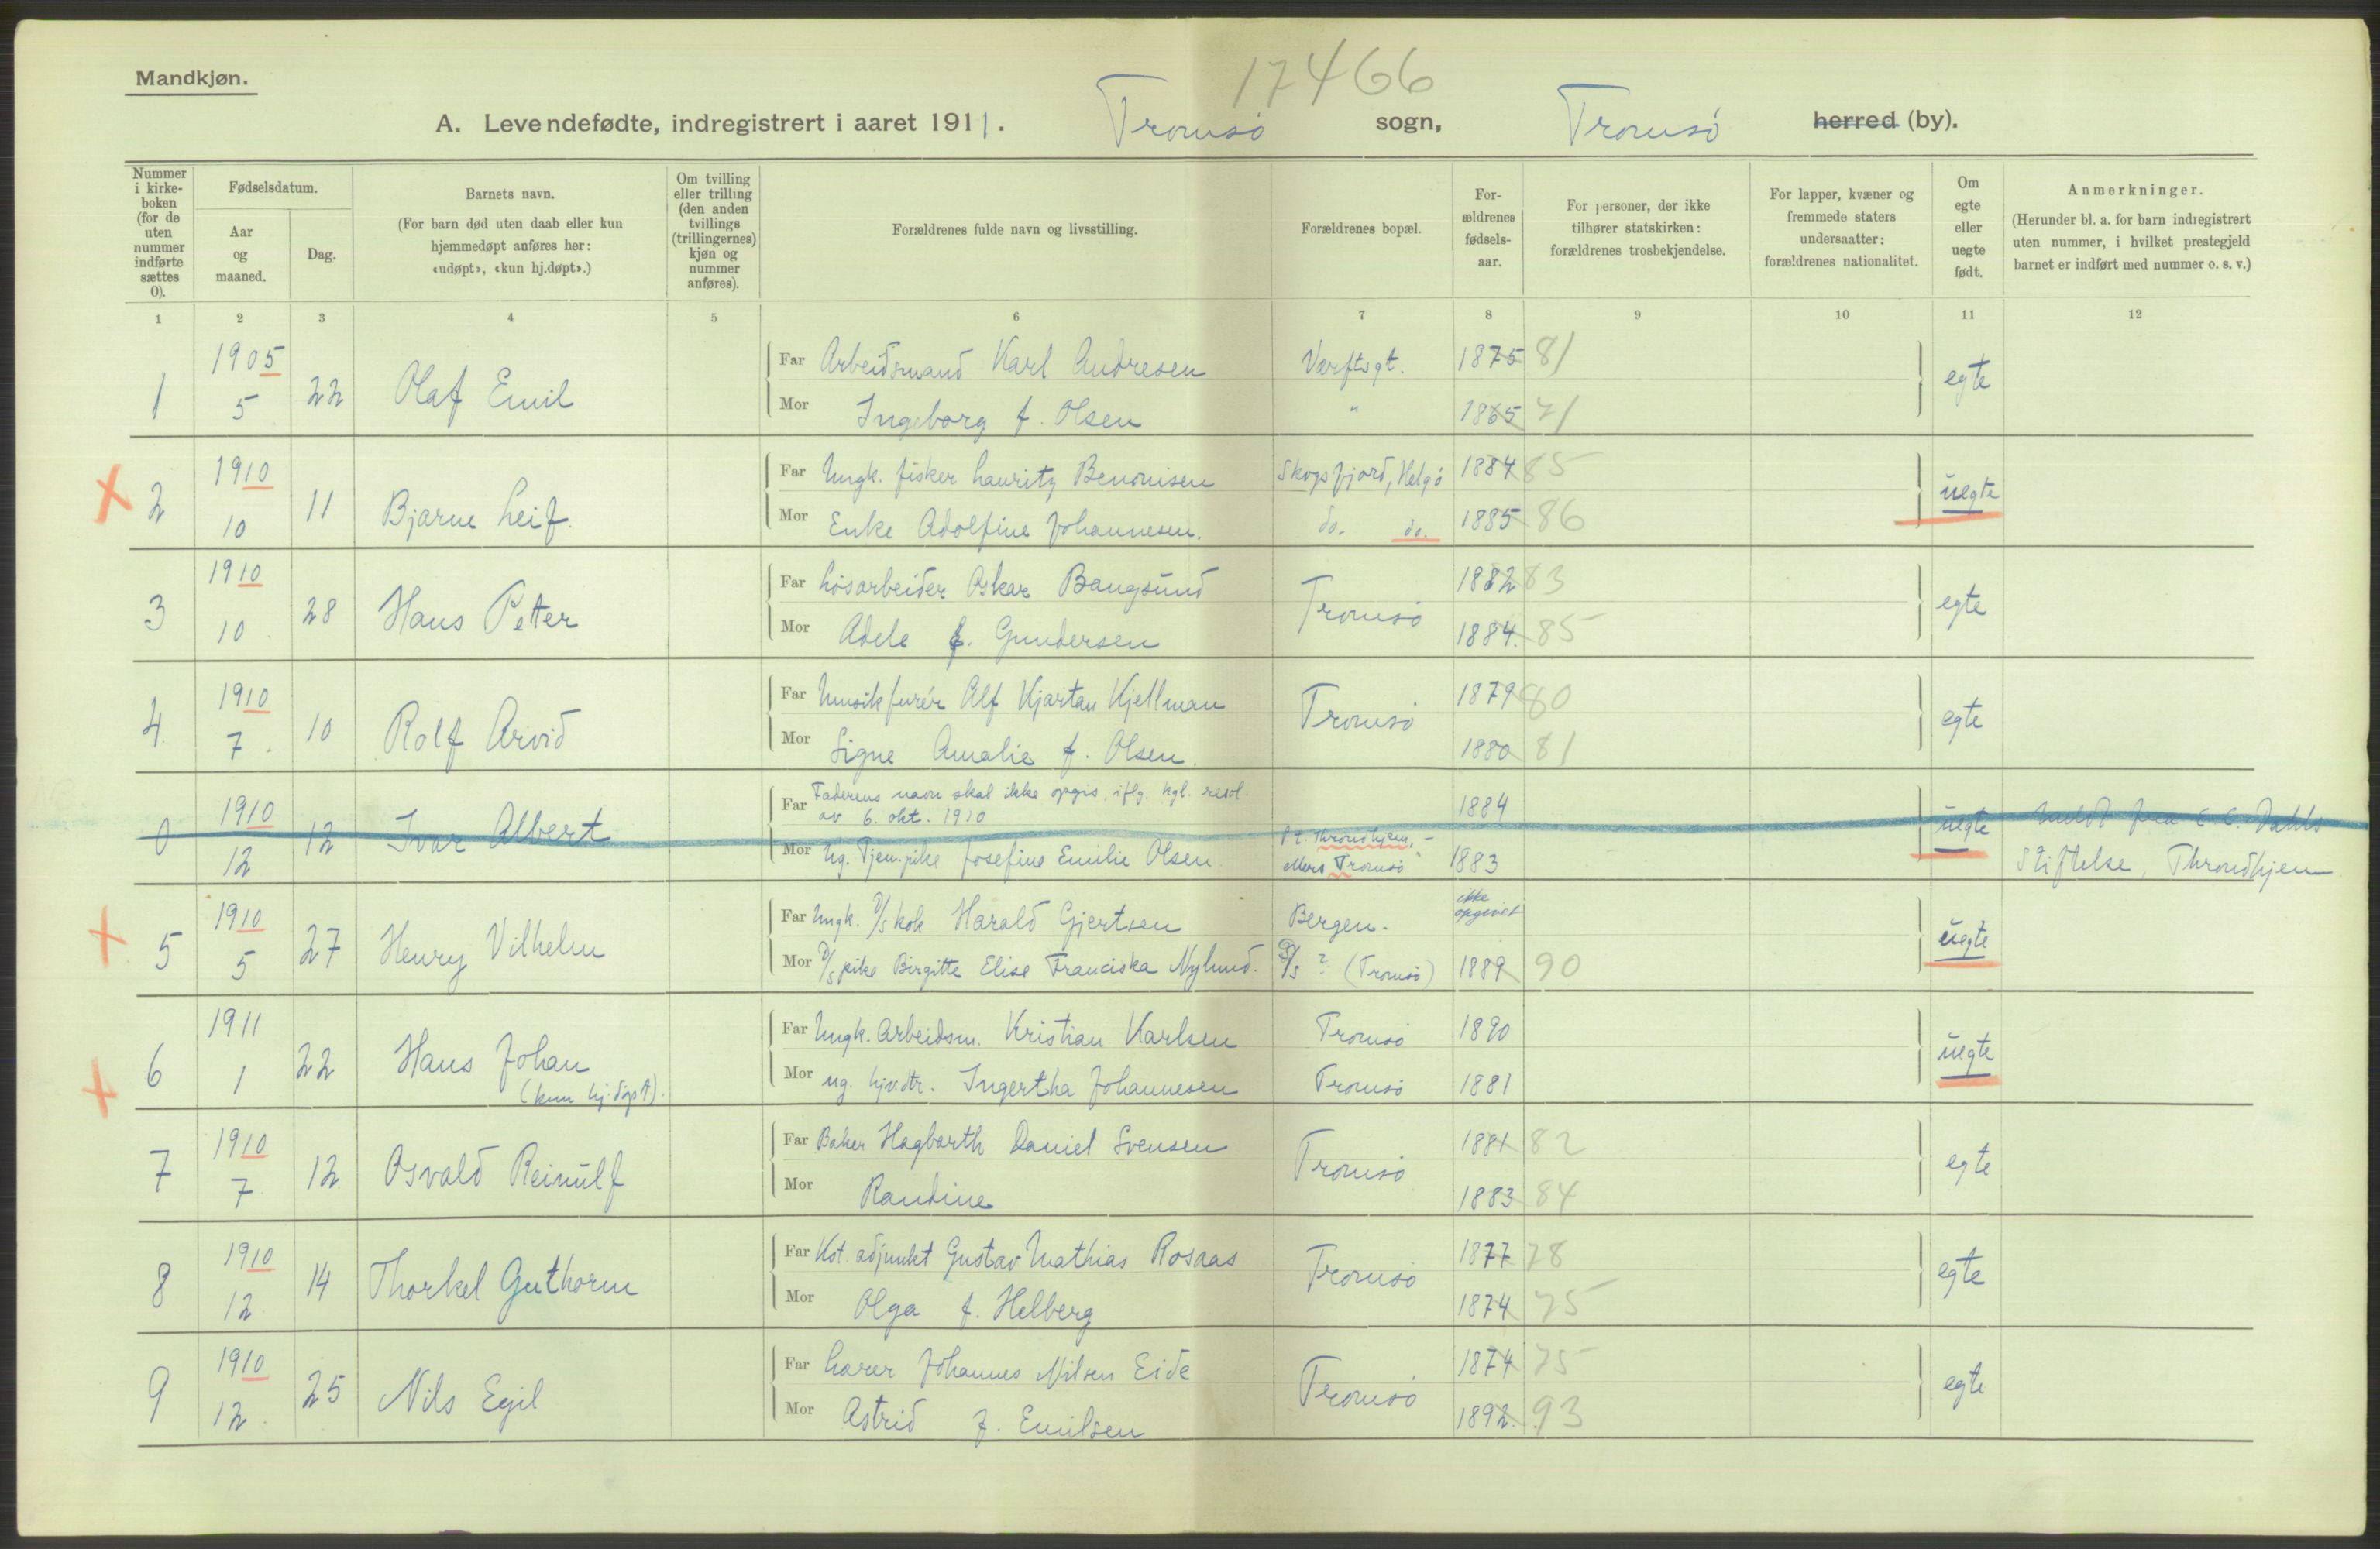 17466
Mandkjøn.
A. Levendefødte, indregistrert i aaret 1911. Tromsö sogn, Tromsö herred (by).
Nummer i kirke-boken (for de uten nummer indførte sættes 0).
Fødselsdatum.
Aar og maaned.
Dag.
Barnets navn.
(For barn død uten daab eller kun hjemmedøpt anføres her: «udøpt», «kun hj.døpt».)
Om tvilling eller trilling (den anden tvillings (trillingernes) kjøn og nummer anføres).
Forældrenes fulde navn og livsstilling.
Forældrenes bopæl.
For-ældrenes fødsels-aar.
For personer, der ikke tilhører statskirken: forældrenes trosbekjendelse.
For lapper, kvæner og fremmede staters undersaatter: forældrenes nationalitet.
Om egte eller uegte født.
Anmerkninger.
(Herunder bl. a. for barn indregistrert uten nummer, i hvilket prestegjeld barnet er indført med nummer o. s. v.)
1 2 3 4 5 6 7 8 9 10 11 12
1 1905 5 22 Olaf Emil
Far Arbeidsmand Karl Andresen Værftsgt. 1875 81 egte
Mor Ingeborg f. Olsen " 1865 71
2 1910 10 11 Bjarne Leif.
Far Ungk. fisker Lauritz Benonisen Skogsfjord, Helgö 1884 85 uegte
Mor Enke Adolfine Johannesen. do. do. 1885 86
3 1910 10 28 Hans Petter
Far Løsarbeider Oskar Bangsund Tromsö 1882 83 egte
Mor Adele f. Gundersen 1884. 85
4 1910 7 10 Rolf Arvid
Far Musikfurér Alf Kjartan Kjellman Tromsö 1879 80 egte
Mor Signe Amalie f. Olsen. 1880 81
0 1910 12 12 Ivar Albert
Far Faderens navn skal ikke opgis, iflg. kgl. resol. av 6. okt. 1910 1884 uegte
Mor Ug. Tjen.pike Josefine Emilie Olsen p.t. Throndhjem, ellers Tromsö 1883
meldt fra E. C. Dahls
Stiftelse, Throndhjem
5 1910 5 27 Henry Vilhelm
Far Ungk. D/S kok Harald Gjertsen Bergen. ikke opgivet uegte
Mor D/S pike Birgitte Elise Franciska Nylund. D/S ? (Tromsö) 1889 90
6 1911 1 22 Hans Johan
(kun hj.døpt).
Far Ungk. Arbeidsm. Kristian Karlsen Tromsö 1890 uegte
Mor ug. hjv.dtr. Ingertha Johannesen Tromsö 1881
7 1910 7 12 Osvald Reinulf
Far Baker Hagbarth Daniel Svensen Tromsö 1881 82 egte
Mor Randine 1883 84
8 1910 12 14 Thorkel Guthorm
Far Kst. adjunkt Gustav Mathias Rosaas Tromsö 1877 78 egte
Mor Olga f. Helberg 1874 75
9 1910 12 25 Nils Egil
Far Lærer Johannes Nilsen Eide Tromsö 1874 75 egte
Mor Astrid f. Emilsen 1892. 93